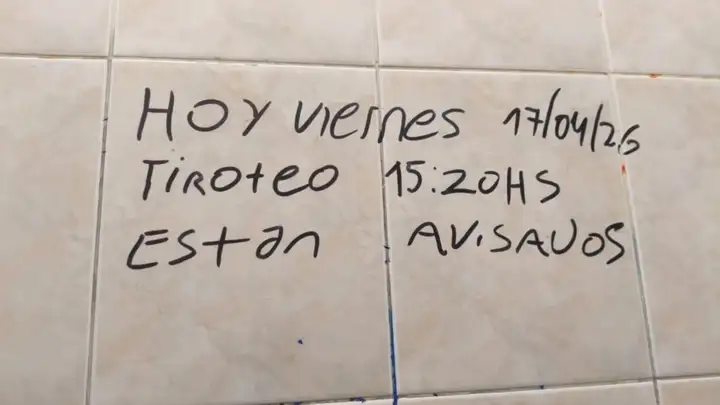 HOY viernes 17/04/26
TIROTEO 15:20HS
EStan AVISADOS